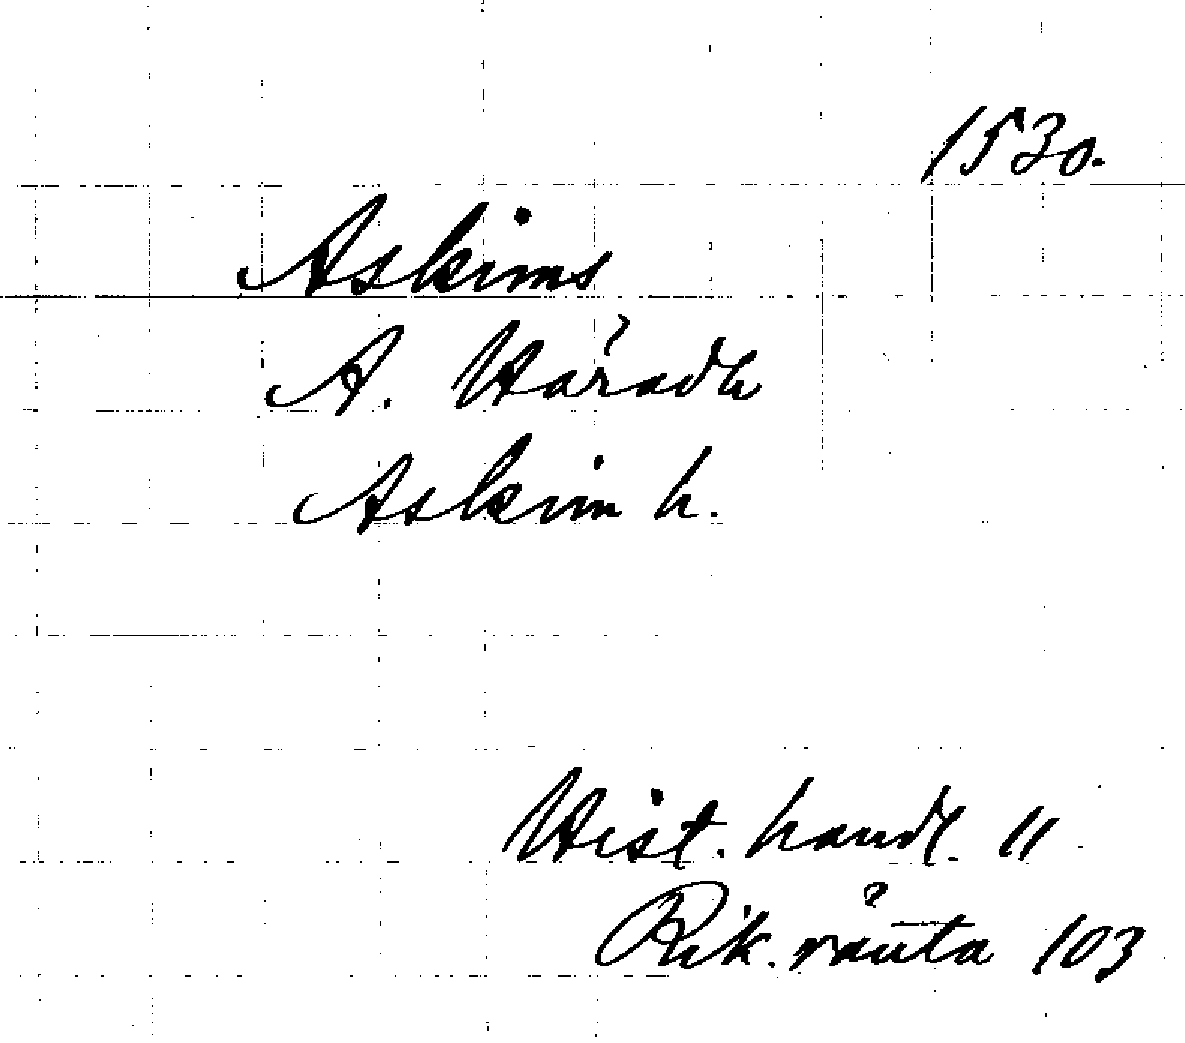 1530.
Askims
A. Háradh
Askim h.
Hist. handl. 11
Rik. ränta 103